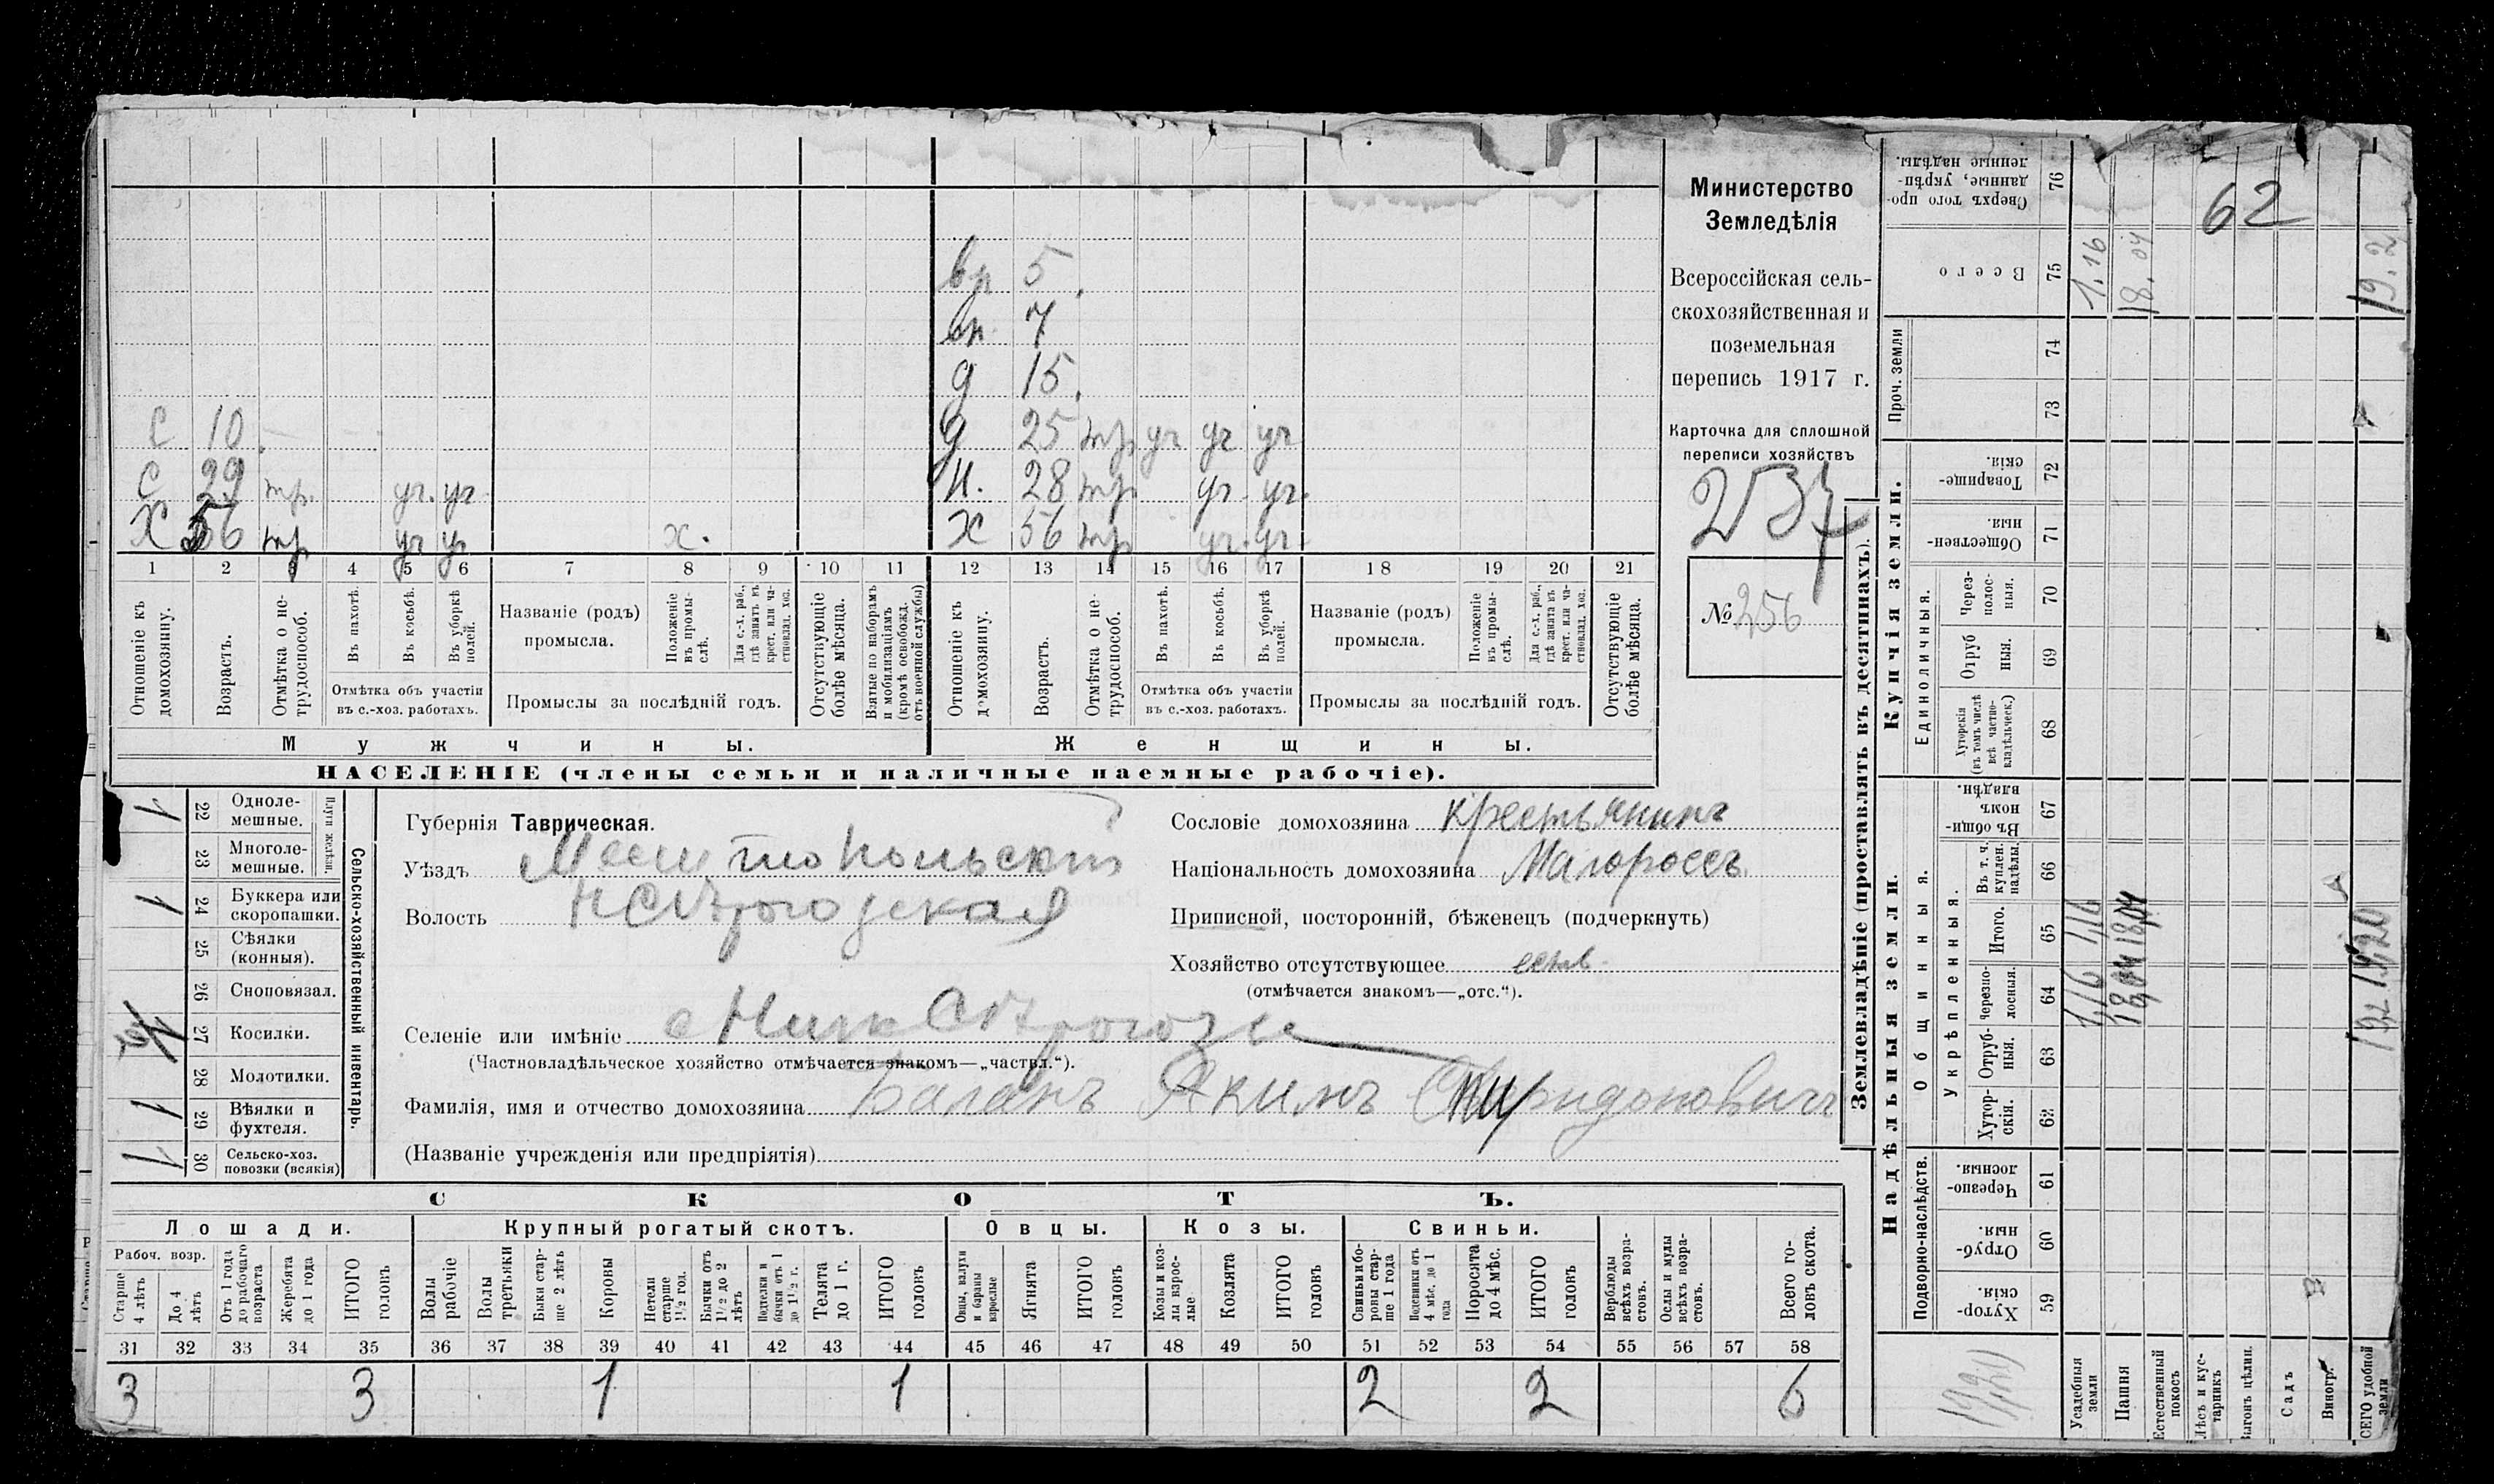 62
Министерство
Земледѣлія
Всероссійская сель-
скохозяйственная и
поземельная
перепись 1917 г.
Карточка для сплошной
переписи хозяйствъ
237
№ 256
вн 5
вн 7
д 15
с 10 д 25 тр уч уч уч
с 29 тр. уч. уч. н. 28 тр уч. уч.
х 56 тр уч уч х. х 56 тр уч. уч.
1 2 3 4 5 6 7 8 9 10 11 12 13 14 15 16 17 18 19 20 21
Отношеніе къ домохозяину.
Возрастъ.
Отмѣтка о не-трудоспособ.
Въ пахотѣ.
Въ косьбѣ.
Въ уборкѣ полей.
Отмѣтка объ участіи
въ с.-хоз. работахъ.
Названіе (родъ)
промысла.
Положеніе въ промы-слѣ.
Для с.-х. раб., гдѣ занятъ въ крест. или ча-стновлад. хоз.
Промыслы за послѣдній годъ.
Отсутствующіе болѣе мѣсяца.
Взятые по наборамъ и мобилизаціямъ (кромѣ освобожд. отъ военной службы)
Отношеніе къ домохозяину.
Возрастъ.
Отмѣтка о не-трудоспособ.
Въ пахотѣ.
Въ косьбѣ.
Въ уборкѣ полей.
Отмѣтка объ участіи
въ с.-хоз. работахъ.
Названіе (родъ)
промысла.
Положеніе въ промы-слѣ.
Для с.-х. раб., гдѣ занята въ крест. или ча-стновлад. хоз.
Промыслы за послѣдній годъ.
Отсутствующіе болѣе мѣсяца.
Мужчины. Женщины.
НАСЕЛЕНІЕ (члены семьи и наличные наемные рабочіе).
Сельско-хозяйственный инвентарь.
Плуги желѣзн.
1 22 Одноле-мешные.
23 Многоле-мешные.
1 24 Буккера или скоропашки.
25 Сѣялки (конныя).
26 Сноповязал.
27 Косилки.
28 Молотилки.
1 29 Вѣялки и фухтеля.
1 30 Сельско-хоз. повозки (всякія)
Губернія Таврическая.
Уѣздъ Мелитопольскій
Волость НСѣрогозская
Селеніе или имѣніе с Ниж Сѣрогозы
(Частновладѣльческое хозяйство отмѣчается знакомъ—„частвл.“).
Фамилія, имя и отчество домохозяина Баланъ Якимъ Спиридоновичъ
(Названіе учрежденія или предпріятія)
Сословіе домохозяина крестьянинъ
Національность домохозяина Малороссъ
Приписной, посторонній, бѣженецъ (подчеркнуть)
Хозяйство отсутствующее
(отмѣчается знакомъ—„отс.“).
СКОТЪ.
Лошади. Крупный рогатый скотъ. Овцы. Козы. Свиньи.
Рабоч. возр.
Старше 4 лѣтъ
До 4 лѣтъ
Отъ 1 года до рабочаго возраста
Жеребята до 1 года
ИТОГО головъ
Волы рабочіе
Волы третьяки
Быки стар-ше 2 лѣтъ
Коровы
Нетели старше 1½ год.
Бычки отъ 1½ до 2 лѣтъ
Подтелки и бычки отъ 1 до 1½ г.
Телята до 1 г.
ИТОГО головъ
Овцы, валухи и бараны взрослые
Ягнята
ИТОГО головъ
Козы и коз-лы взрос-лые
Козлята
ИТОГО головъ
Свиньи и бо-ровы стар-ше 1 года
Подсвинки отъ 4 мѣс. до 1 года
Поросята до 4 мѣс.
ИТОГО головъ
Верблюды всѣхъ возра-стовъ.
Ослы и мулы всѣхъ возра-стовъ.
Всего го-ловъ скота.
31 32 33 34 35 36 37 38 39 40 41 42 43 44 45 46 47 48 49 50 51 52 53 54 55 56 57 58
3 3 1 1 2 2 6
Землевладѣніе (проставлять въ десятинахъ).
Надѣльныя земли.
Купчія земли.
Проч. земли
Подворно-наслѣдств.
Общинныя.
Укрѣпленныя.
Единоличныя.
Сверхъ того про-данные, укрѣп-ленные надѣлы. 76
Всего 75 1.16 18.04 19.2
74
73
Товарище-скія. 72
Обществен-ныя. 71
Через-полос-ныя. 70
Отруб-ныя. 69
Хуторскія (въ томъ числѣ всѣ частно-владѣльческ.) 68
Въ общи-номъ владѣн. 67
Въ т. ч. куплен. надѣлы. 66
Итого. 65 1,16 18,04 19,20
Черезпо-лосныя. 64 1,16 18,04
Отруб-ныя. 63
Хутор-скія. 62
Черезпо-лосныя. 61
Отруб-ныя. 60
Хутор-скія. 59
19,20
Усадебныя земли
Пашня
Естественный покосъ
Лѣсъ и кус-тарникъ
Выгонъ цѣлин.
Садъ
Виногр.
ВСЕГО удобной земли